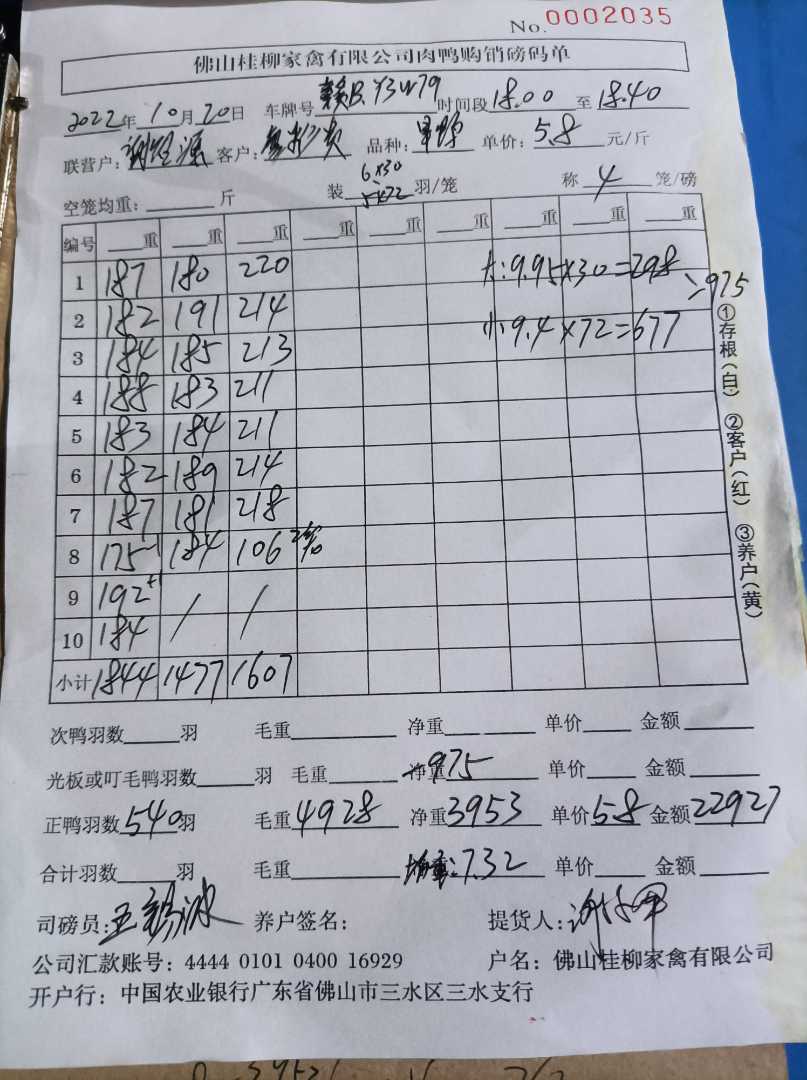 No. 0002035
佛山桂柳家禽有限公司肉鸭购销磅码单
2022年10月20日 车牌号 赣B.Y3W79 时间段18.00 至 18.40
联营户： 源 客户： 品种： 单价：5.8 元/斤
6×30
空笼均重： 斤 装 5×72 羽/笼 称 4 笼/磅
编号 重 重 重 重 重 重 重 重 重
1 187 180 220 大：9.95×30=298
=975
2 182 191 214 小：9.4×72=677
3 184 185 213
4 188 183 211
5 183 184 211
6 182 189 214
7 187 181 218
8 175-1 184 106
9 192+1 / /
10 184
小计 1844 1477 1607
①存根(白) ②客户(红) ③养户(黄)
次鸭羽数 羽 毛重 净重 单价 金额
光板或叮毛鸭羽数 羽 毛重 净重 975 单价 金额
正鸭羽数 540 羽 毛重 4928 净重 3953 单价 5.8 金额 22927
合计羽数 羽 毛重 ：7.32 单价 金额
司磅员： 王 冰 养户签名： 提货人：
公司汇款账号：4444 0101 0400 16929 户名：佛山桂柳家禽有限公司
开户行：中国农业银行广东省佛山市三水区三水支行